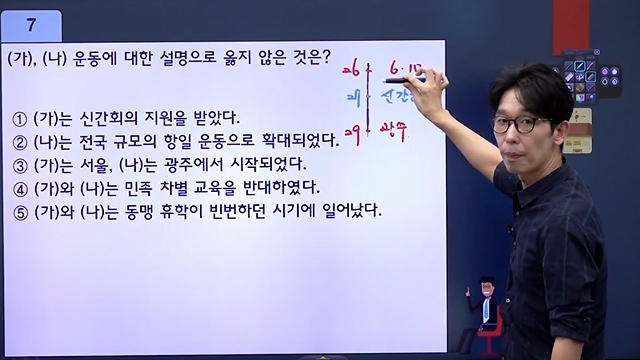 7
(가), (나) 운동에 대한 설명으로 옳지 않은 것은?
① (가)는 신간회의 지원을 받았다.
② (나)는 전국 규모의 항일 운동으로 확대되었다.
③ (가)는 서울, (나)는 광주에서 시작되었다.
④ (가)와 (나)는 민족 차별 교육을 반대하였다.
⑤ (가)와 (나)는 동맹 휴학이 빈번하던 시기에 일어났다.
26 6·10
27 신간
29 광주